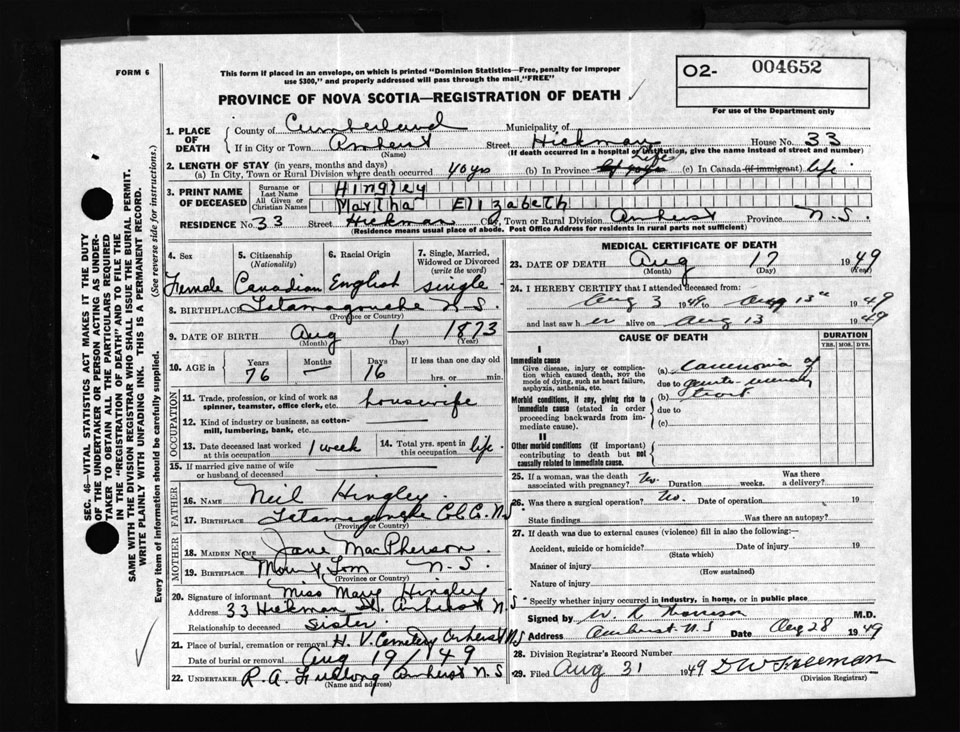 FORM 6
This form if placed in an envelope, on which is printed "Dominion Statistics—Free, penalty for improper
use $300," and properly addressed will pass through the mail "FREE"
O2- 004652
For use of the Department only
PROVINCE OF NOVA SCOTIA—REGISTRATION OF DEATH
1. PLACE OF DEATH County of Cumberland Municipality of
If in City or Town Amherst (Name) Street Hickman House No. 33
(If death occurred in a hospital or institution, give the name instead of street and number)
2. LENGTH OF STAY (in years, months and days)
(a) In City, Town or Rural Division where death occurred 40 yrs (b) In Province Life (c) In Canada (if immigrant) life
3. PRINT NAME OF DECEASED Surname or Last Name Hingley
All Given or Christian Names Martha Elizabeth
RESIDENCE No. 33 Street Hickman City, Town or Rural Division Amherst Province N.S.
(Residence means usual place of abode. Post Office Address for residents in rural parts not sufficient)
4. Sex 5. Citizenship (Nationality) 6. Racial Origin 7. Single, Married, Widowed or Divorced (write the word)
Female Canadian English single
8. BIRTHPLACE Tatamagouche N.S. (Province or Country)
9. DATE OF BIRTH Aug (Month) 1 (Day) 1873 (Year)
10. AGE in Years 76 Months — Days 16 If less than one day old hrs. or min.
OCCUPATION
11. Trade, profession, or kind of work as spinner, teamster, office clerk, etc. housewife
12. Kind of industry or business, as cotton-mill, lumbering, bank, etc.
13. Date deceased last worked at this occupation 1 week 14. Total yrs. spent in this occupation life
15. If married give name of wife or husband of deceased
FATHER
16. NAME Neil Hingley
17. BIRTHPLACE Tatamagouche Col. Co. N.S (Province or Country)
MOTHER
18. MAIDEN NAME Jane MacPherson
19. BIRTHPLACE Mount Tom N.S. (Province or Country)
20. Signature of informant Miss Mary Hingley
Address 33 Hickman St. Amherst N S
Relationship to deceased sister
21. Place of burial, cremation or removal H. V. Cemetery Amherst N S
Date of burial or removal Aug 19/49
22. UNDERTAKER R. A. Furlong Amherst N S
(Name and address)
MEDICAL CERTIFICATE OF DEATH
23. DATE OF DEATH Aug (Month) 17 (Day) 1949 (Year)
24. I HEREBY CERTIFY that I attended deceased from:
Aug 3 1949 to Aug 13th 1949
and last saw her alive on Aug 13 1949
CAUSE OF DEATH DURATION
YRS. MOS. DYS.
I
Immediate cause
Give disease, injury or complication which caused death, NOT the mode of dying, such as heart failure, asphyxia, asthenia, etc.
(a) Carcinoma of
due to genito-urinary
Morbid conditions, if any, giving rise to immediate cause (stated in order proceeding backwards from immediate cause).
(b) tract
due to
(c)
II
Other morbid conditions (if important) contributing to death but not causally related to immediate cause.
25. If a woman, was the death associated with pregnancy? No. Duration weeks. Was there a delivery?
26. Was there a surgical operation? No. Date of operation 19
State findings Was there an autopsy?
27. If death was due to external causes (violence) fill in also the following:
Accident, suicide or homicide? (State which) Date of injury 19
Manner of injury (How sustained)
Nature of injury
Specify whether injury occurred in industry, in home, or in public place
Signed by M.D.
Address Amherst N.S Date Aug 28 1949
28. Division Registrar's Record Number
29. Filed Aug 31 1949 D W Freeman
(Division Registrar)
SEC. 46—VITAL STATISTICS ACT MAKES IT THE DUTY
OF THE UNDERTAKER OR PERSON ACTING AS UNDER-
TAKER TO OBTAIN ALL THE PARTICULARS REQUIRED
IN THE "REGISTRATION OF DEATH" AND TO FILE THE
SAME WITH THE DIVISION REGISTRAR WHO SHALL ISSUE THE BURIAL PERMIT.
WRITE PLAINLY WITH UNFADING INK. THIS IS A PERMANENT RECORD.
Every item of information should be carefully supplied. (See reverse side for instructions.)